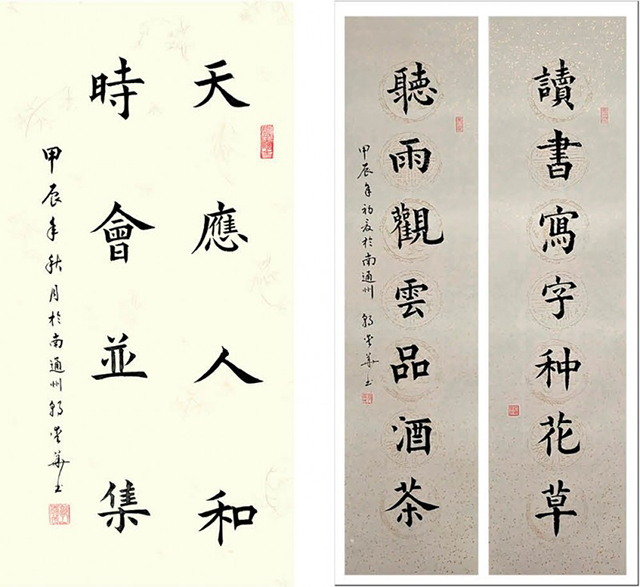 天應人和
時會並集
甲辰年秋月於南通州
讀書寫字种花草
聽雨觀雲品酒茶
甲辰年初夏於南通州